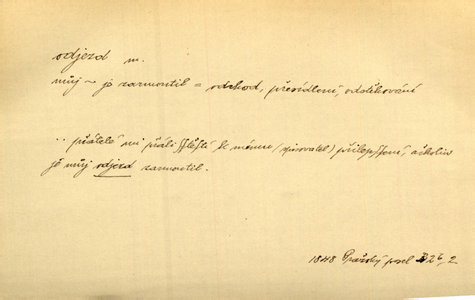 odjezd m.
můj ~ je zarmoutil = odchod, přesídlení, odstěhování
.. přátelé mi přáli štěstí ke mému (spisovatel) přilepšení, ačkoliv
je můj odjezd zarmoutil.
1848 Pražský posel 26/2